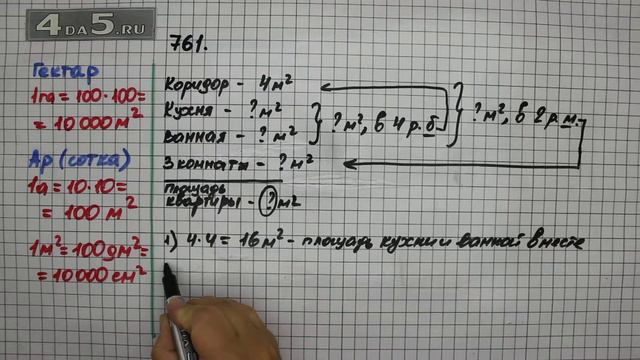 4DA5.RU
761.
Гектар
1га = 100·100=
= 10 000 м²
Ар (сотка)
1а = 10·10=
= 100 м²
1м² = 100дм² =
= 10 000 см²
Коридор - 4м²
Кухня - ?м²
Ванная - ?м²
} ?м², в 4 р. б.
} ?м², в 2 р. м.
3 комнаты - ?м²
площадь
квартиры - ? м²
1) 4·4 = 16м² - площадь кухни и ванной вместе